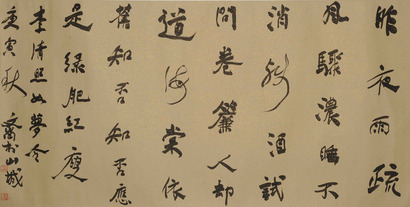 昨夜雨疏
風驟濃睡不
消殘酒試
問卷簾人却
道海棠依
舊知否知否應
是緑肥紅瘦
李清照如夢令
庚寅秋 山城